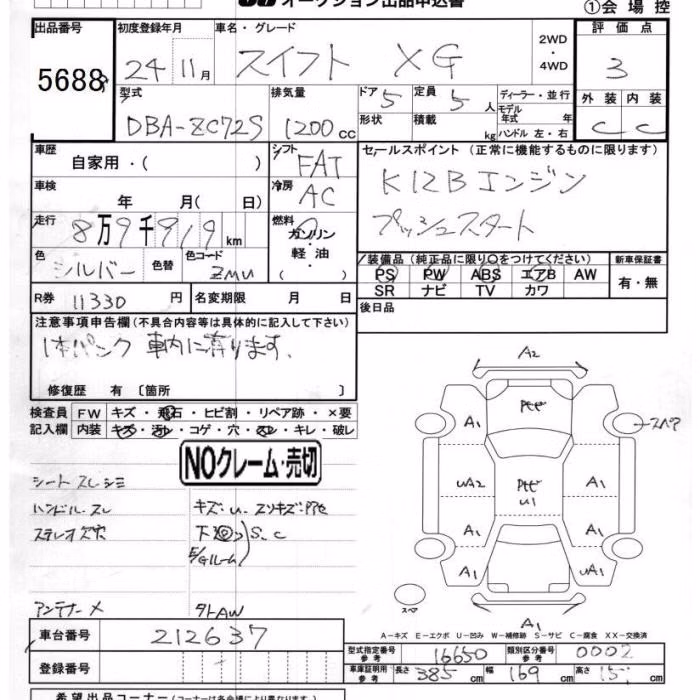 オークション出品申込書
①会場控
出品番号 初度登録年月 車名・グレード 2WD・4WD 評価点
5688 24年11月 スイフト XG 3
型式 排気量 ドア 定員 ディーラー・並行 外装 内装
DBA-ZC72S 1200cc 5 5人 モデル年式 年 C C
形状 積載 kg ハンドル 左・右
車歴 自家用・( ) シフト FAT セールスポイント (正常に機能するものに限ります)
車検 年 月( 日) 冷房 AC K12Bエンジン
走行 8万9千919km 燃料 ガソリン 軽油 ( ) プッシュスタート
色 シルバー 色替 色コード ZMU 装備品(純正品に限り○をつけてください) 新車保証書
PS PW ABS エアB AW 有・無
SR ナビ TV カワ
R券 11330円 名変期限 月 日 後日品
注意事項申告欄(不具合内容等は具体的に記入して下さい)
1本パンク 車内に有ります。
修復歴 有 〔箇所 〕
検査員 FW キズ・飛石・ヒビ割・リペア跡・×要
記入欄 内装 キズ・汚レ・コゲ・穴・スレ・キレ・破レ
NOクレーム・売切
シートスレシミ
ハンドルスレ キズ・U・スリキズ
ステレオ欠 下廻り S、C
E/Gルーム
アンテナ× 外AW
A2
A1 スペア
UA2 U1 A1
A1 A1
A1 UA1
スペア A1
A-キズ E-エクボ U-凹み W-補修跡 S-サビ C-腐食 XX-交換済
車台番号 212637 型式指定番号 参考 16650 類別区分番号 参考 0002
登録番号 車庫証明用 参考 長さ 385cm 幅 169cm 高さ cm
希望出品コーナー